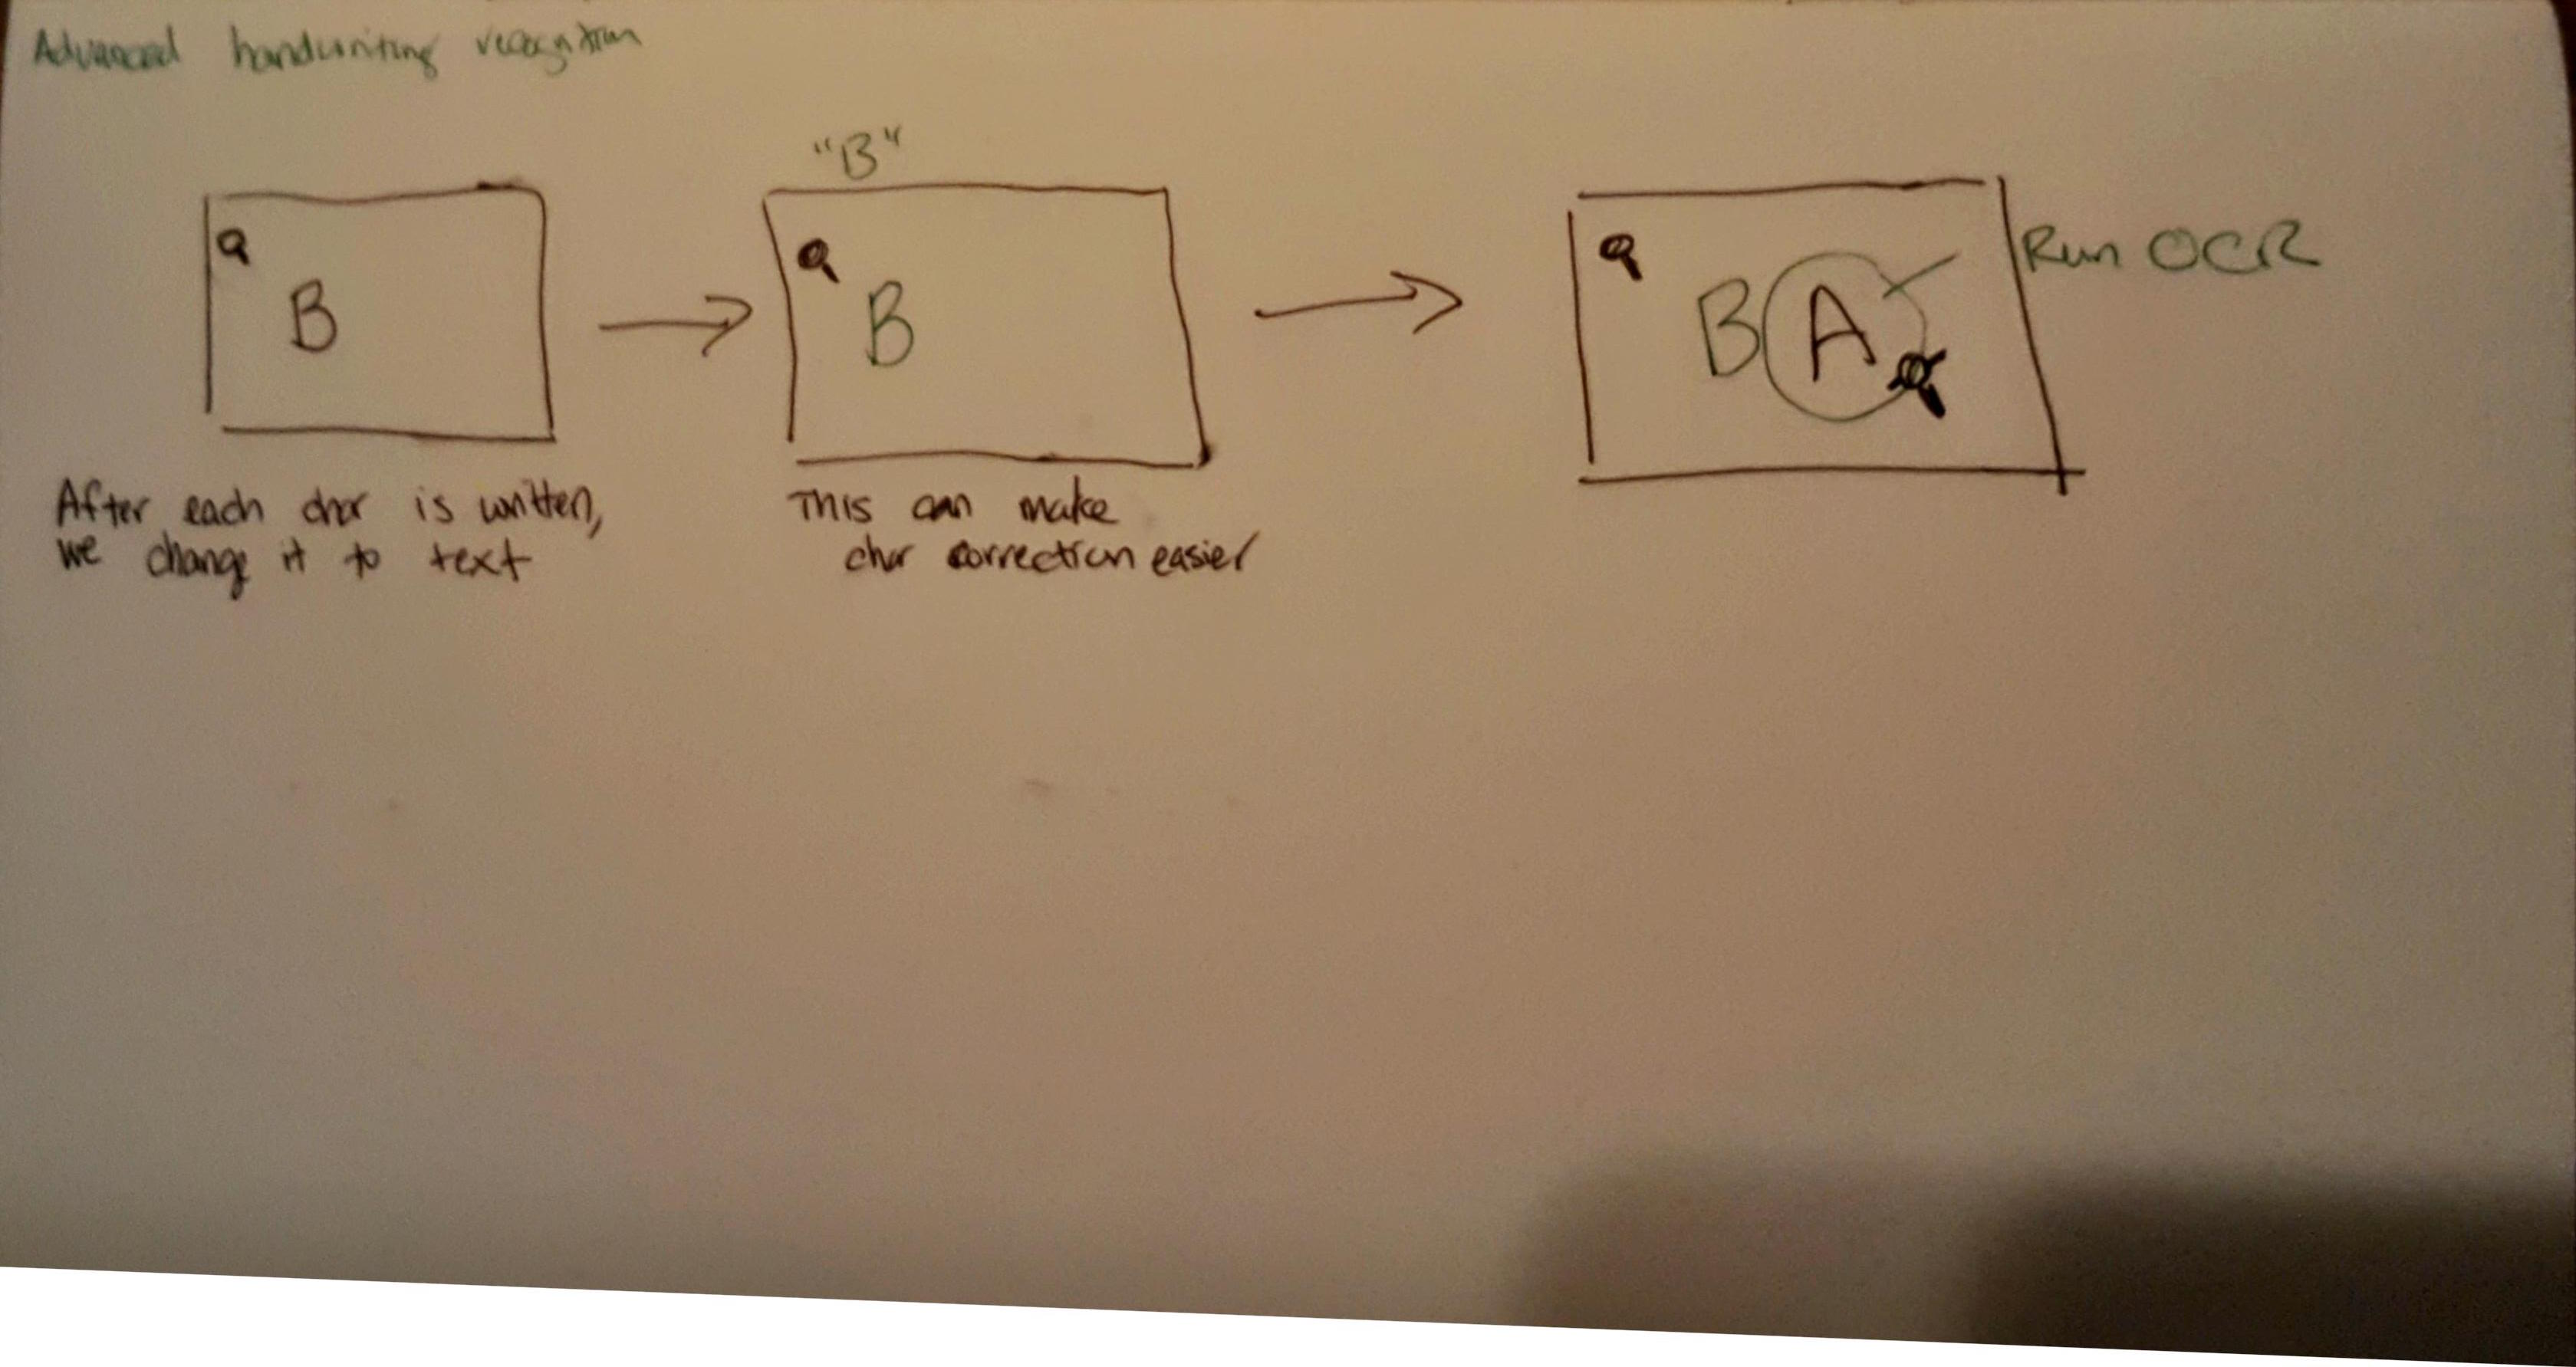 Advanced handwriting recognition
"B"
B
B
B A
Run OCR
After each char is written,
we change it to text
This can make
char correction easier